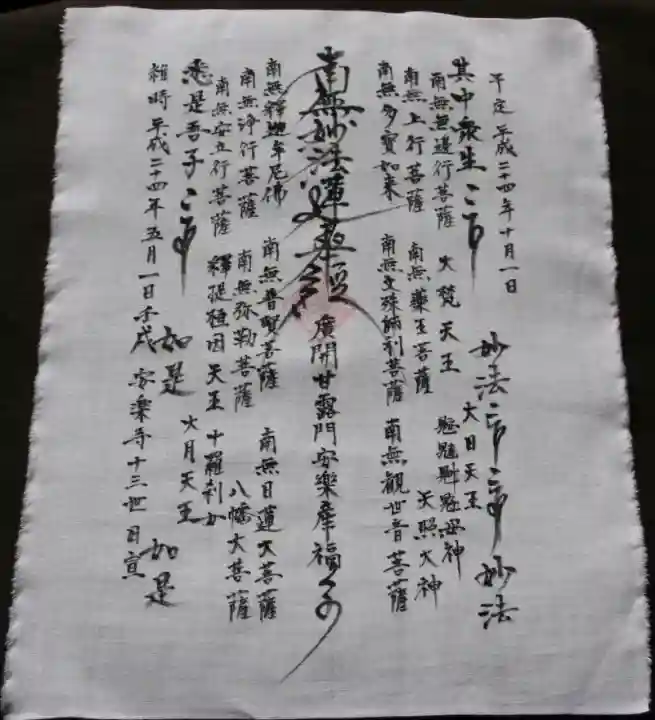 予定 平成二十四年十月一日
妙法 妙法
其中衆生
大日天王
南無無邊行菩薩 大梵天王 鬼子母神
南無上行菩薩 南無藥王菩薩 天照大神
南無多寶如来 南無文殊師利菩薩 南無観世音菩薩
南無妙法蓮華経 廣開甘露門安樂産福子
南無釋迦牟尼佛 南無普賢菩薩 南無日蓮大菩薩
南無浄行菩薩 南無弥勒菩薩 八幡大菩薩
南無安立行菩薩 釋提桓因天王 十羅刹女
悉是吾子
大月天王
如是 如是
維時平成二十四年五月一日壬戌 安樂寺十三世日宣